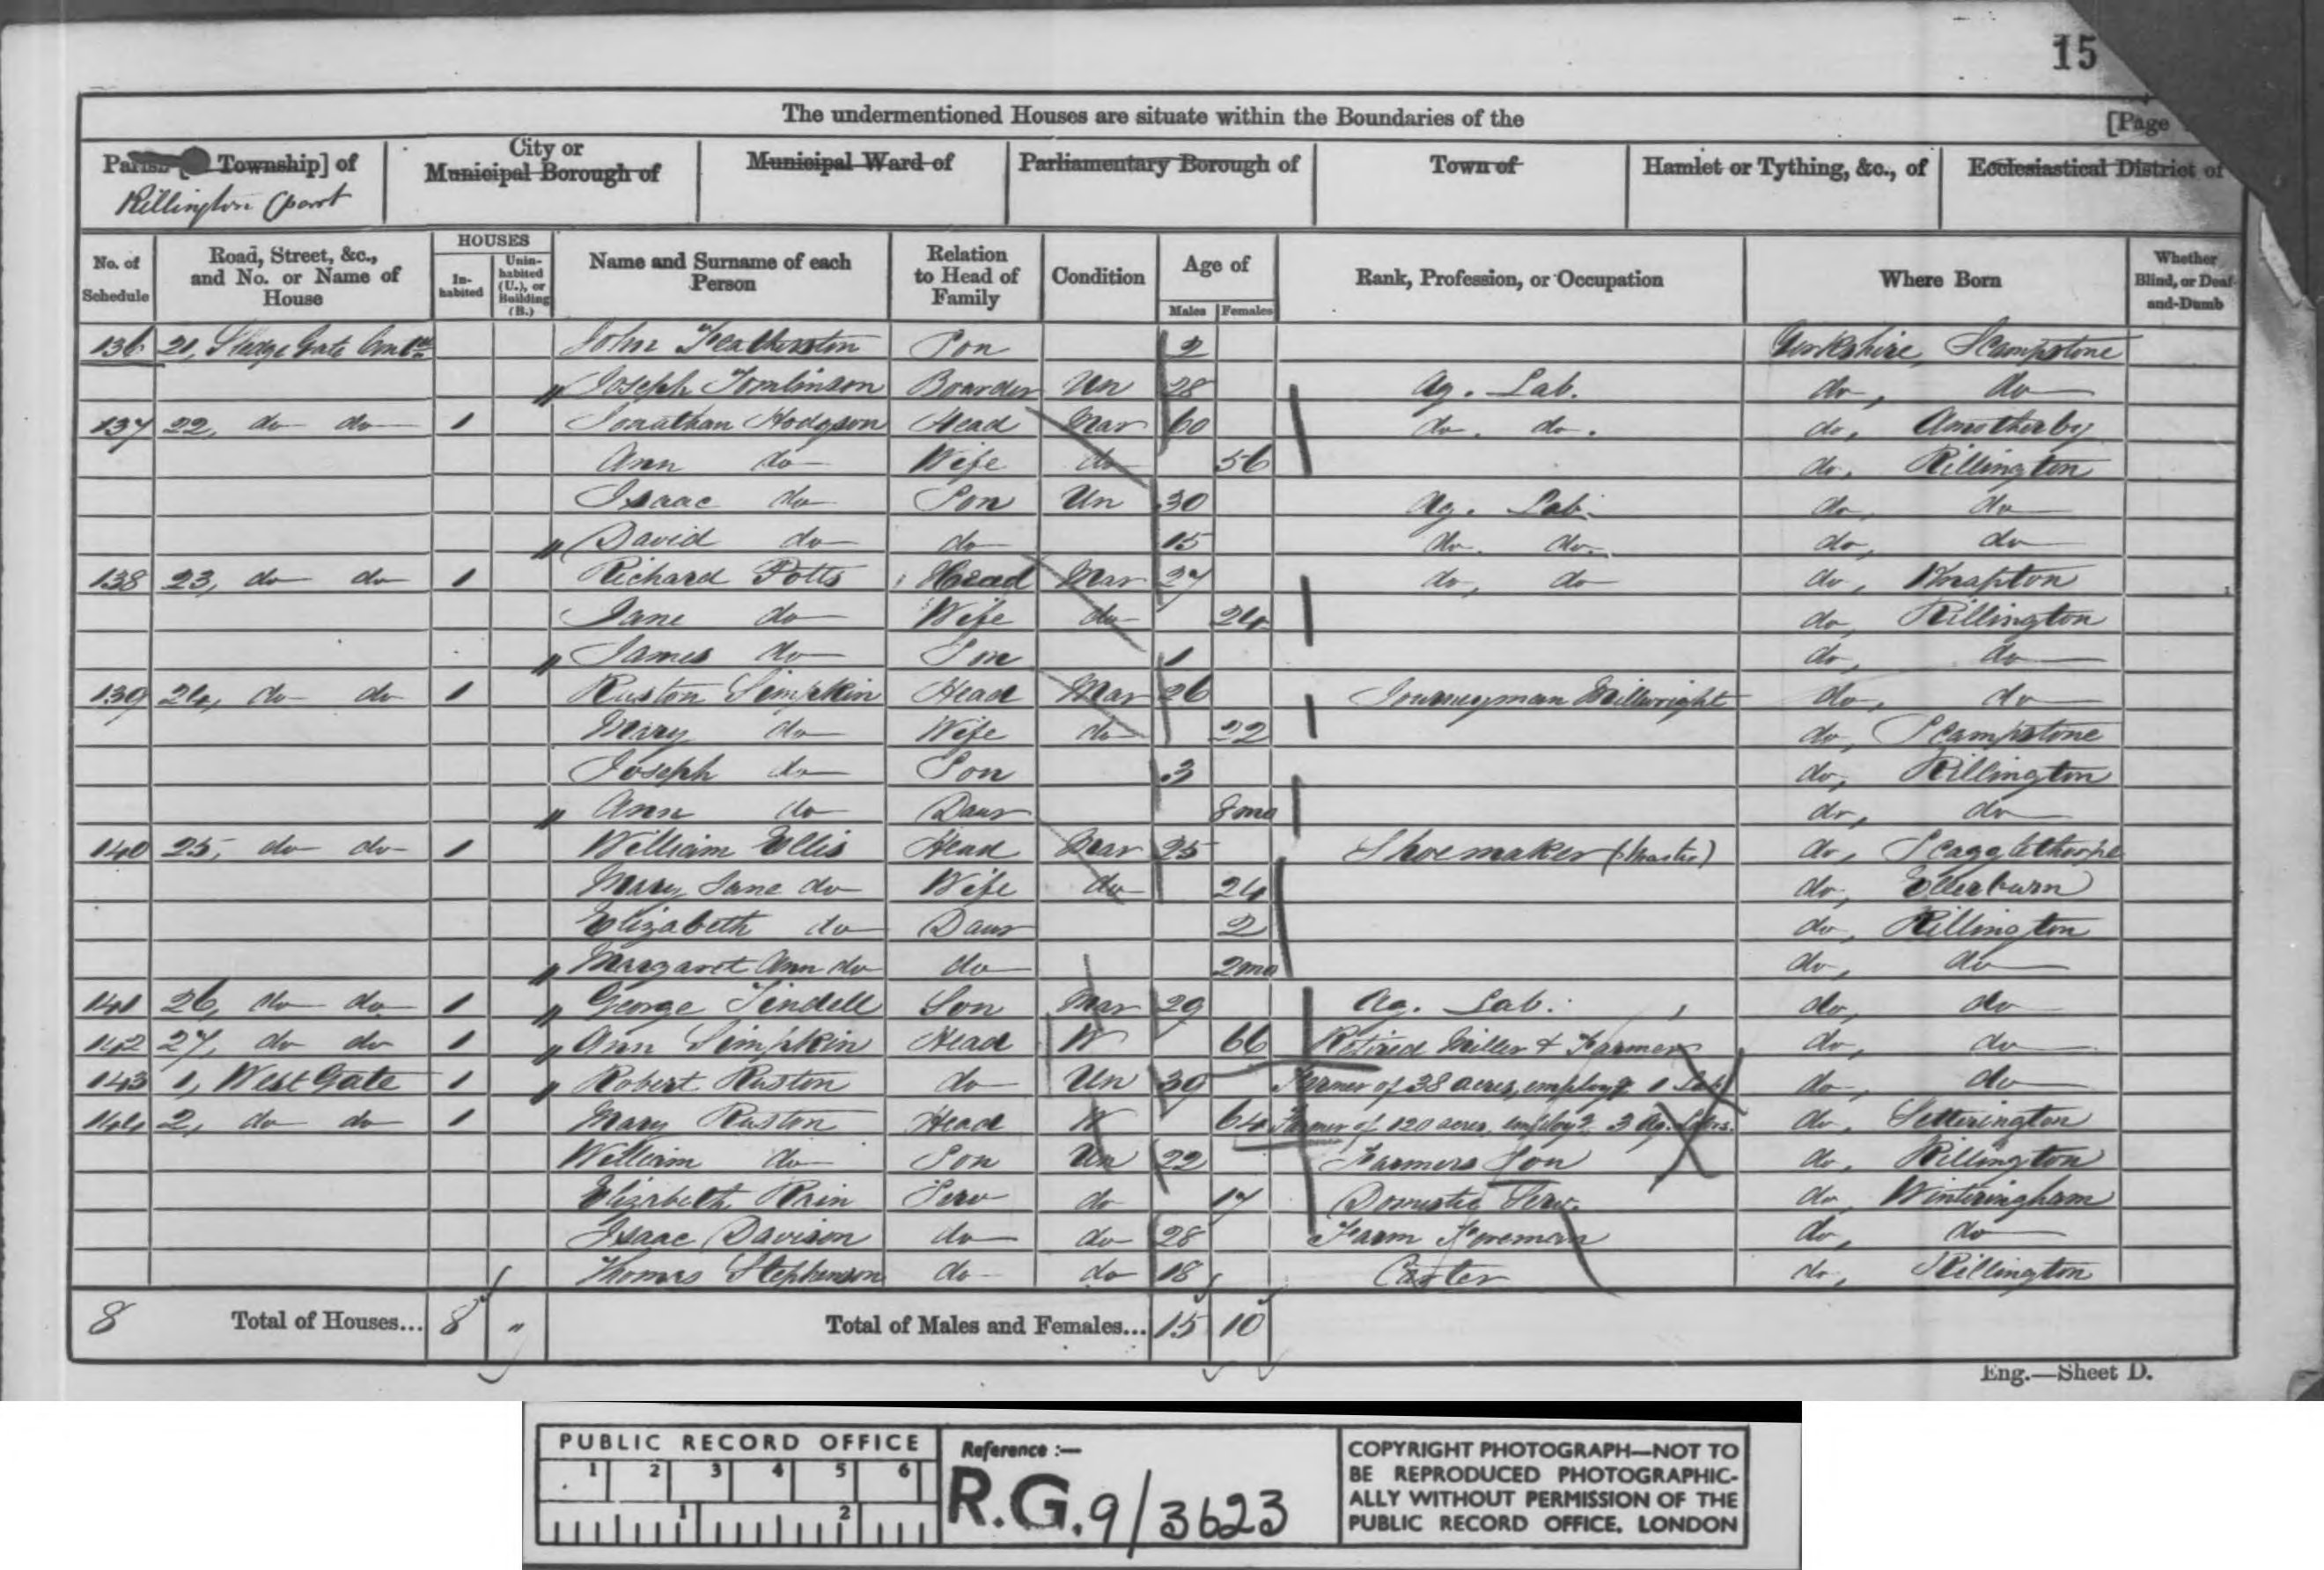 15
The undermentioned Houses are situate within the Boundaries of the
[Page
Parish [ Township] of
City or Municipal Borough of
Municipal Ward of
Parliamentary Borough of
Town of
Hamlet or Tything, &c., of
Ecclesiastical District of
Rillington (part
No. of Schedule
Road, Street, &c., and No. or Name of House
HOUSES
In-habited
Unin-habited (U.), or Building (B.)
Name and Surname of each Person
Relation to Head of Family
Condition
Age of
Males Females
Rank, Profession, or Occupation
Where Born
Whether Blind, or Deaf-and-Dumb
136 21, Sledge Gate John Featherston Son 2 Yorkshire, Scampstone
" Joseph Tomlinson Boarder Un 28 Ag. Lab. do, do
137 22, do do 1 Jonathan Hodgson Head Mar 60 do. do. do, Amotherby
Ann do Wife do 56 do, Rillington
Isaac do Son Un 30 Ag. Lab. do, do
" David do do 15 do. do. do, do
138 23, do do 1 Richard Potts Head Mar 27 do, do do, Knapton
Jane do Wife do 24 do, Rillington
" James do Son 1 do, do
139 24, do do 1 Ruston Simpkin Head Mar 26 Journeyman Millwright do, do
Mary do Wife do 22 do, Scampstone
Joseph do Son 3 do, Rillington
" Ann do Daur 8mo do, do
140 25, do do 1 William Ellis Head Mar 25 Shoemaker (Master) do, Scagglethorpe
Mary Jane do Wife do 24 do, Ellerburn
Elizabeth do Daur 2 do, Rillington
" Margaret Ann do do 2mo do, do
141 26, do do 1 " George Tindell Son Mar 29 Ag. Lab. do, do
142 27, do do 1 " Ann Simpkin Head W 66 Retired Miller & Farmer do, do
143 1, West Gate 1 " Robert Ruston do Un 39 Farmer of 38 acres, employg 1 Lab. do, do
144 2, do do 1 Mary Ruston Head W 64 Farmer of 120 acres, employg 3 Ag. Labs. do, Settrington
William do Son Un 22 Farmers Son do, Rillington
Elizabeth Serv do 17 Domestic Serv. do, Winteringham
Isaac Davison do do 28 Farm Foreman do, do
Thomas Stephenson do do 18 Carter do, Rillington
8 Total of Houses... 8 " Total of Males and Females... 15 10
Eng.—Sheet D.
PUBLIC RECORD OFFICE
1 2 3 4 5 6
1 2
Reference :—
R.G. 9/3623
COPYRIGHT PHOTOGRAPH—NOT TO
BE REPRODUCED PHOTOGRAPHIC-
ALLY WITHOUT PERMISSION OF THE
PUBLIC RECORD OFFICE, LONDON